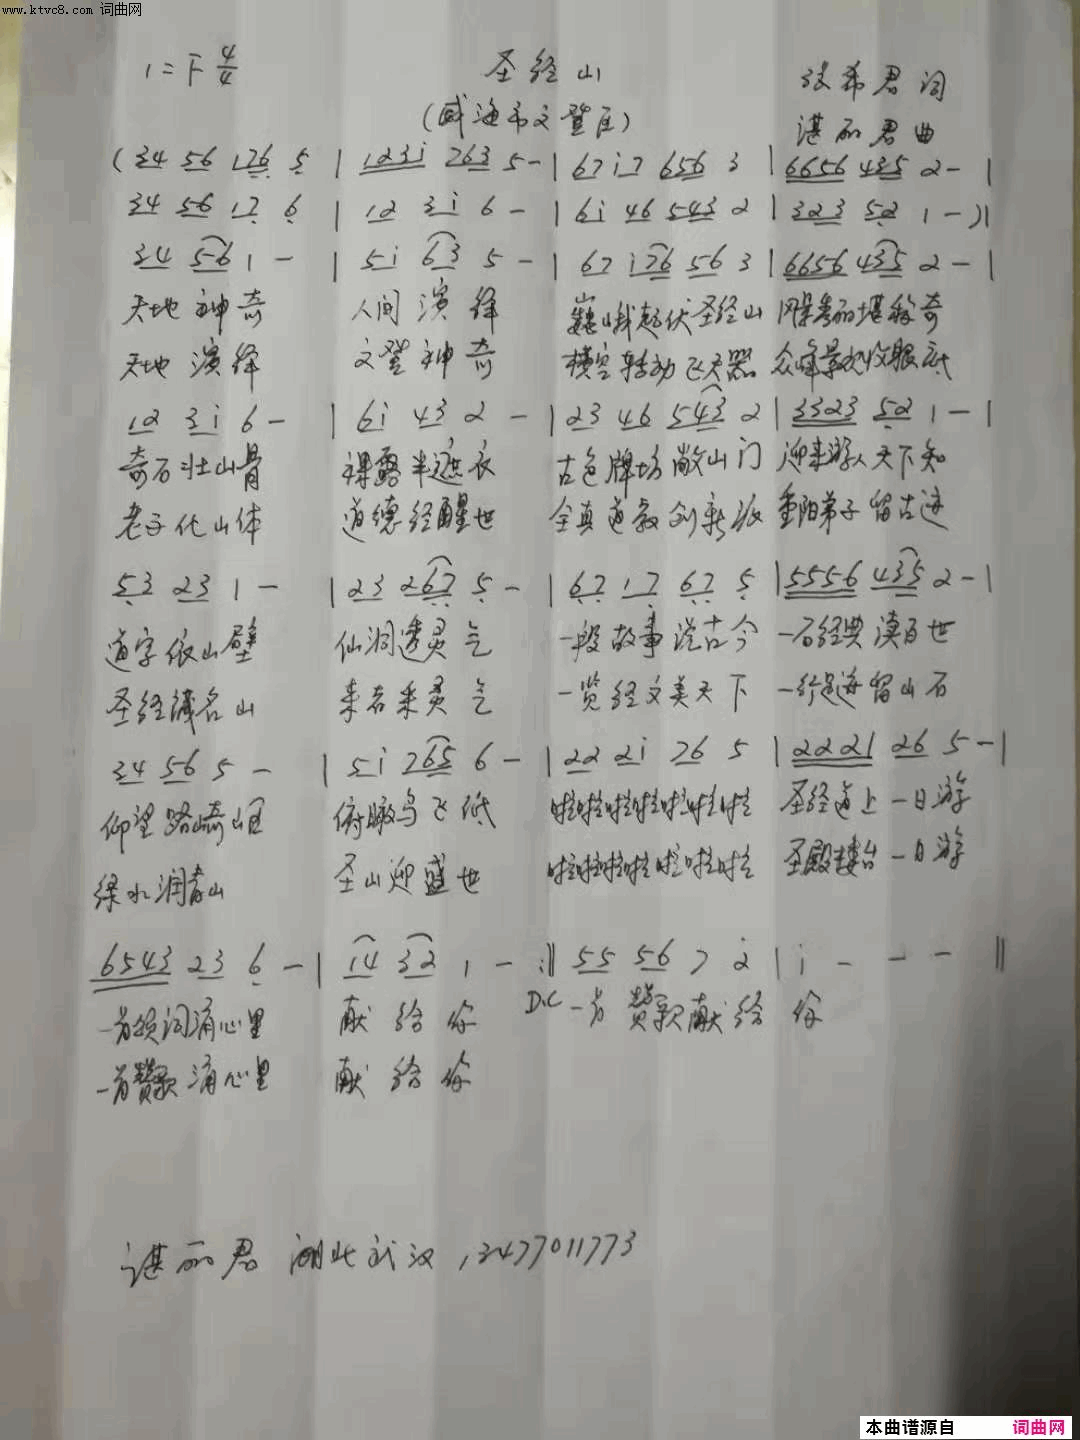 www.ktvc8.com 词曲网
1=F 4/4 圣经山 张希君词
(威海市文登区) 谌丽君曲
(34 56 176 5 | 123i 763 5 - | 67 i7 656 3 | 6656 435 2 - |
34 56 17 6 | 12 3i 6 - | 6i 46 543 2 | 323 52 1 - )|
34 56 1 - | 5i 63 5 - | 67 i76 56 3 | 6656 435 2 - |
天地神奇 人间演绎 巍峨起伏圣经山 风景秀丽堪称奇
天地演绎 文登神奇 横空转动飞天器 众峰景观收眼底
12 3i 6 - | 6i 43 2 - | 23 46 543 2 | 3323 52 1 - |
奇石壮山骨 裸露半遮衣 古色牌坊敞山门 迎来游人天下知
老子化山体 道德经醒世 全真道教创新派 重阳弟子留古迹
53 23 1 - | 23 267 5 - | 67 17 67 5 | 5556 435 2 - |
道字依山壁 仙洞透灵气 一段故事说古今 一石经典读百世
圣经藏名山 来者采灵气 一览经文美天下 一行足迹留山石
34 56 5 - | 5i 765 6 - | 22 2i 76 5 | 2221 26 5 - |
仰望路崎岖 俯瞰鸟飞低 啦啦啦啦啦啦啦 圣经道上一日游
绿水润青山 圣山迎盛世 啦啦啦啦啦啦啦 圣殿楼台一日游
6543 23 6 - | 14 32 1 - :‖ 55 56 7 2 | i - - - ‖
一首颂词涌心里 献给你 D.C 一首赞歌献给你
一首赞歌涌心里 献给你
谌丽君 湖北武汉 13477011773
本曲谱源自 词曲网